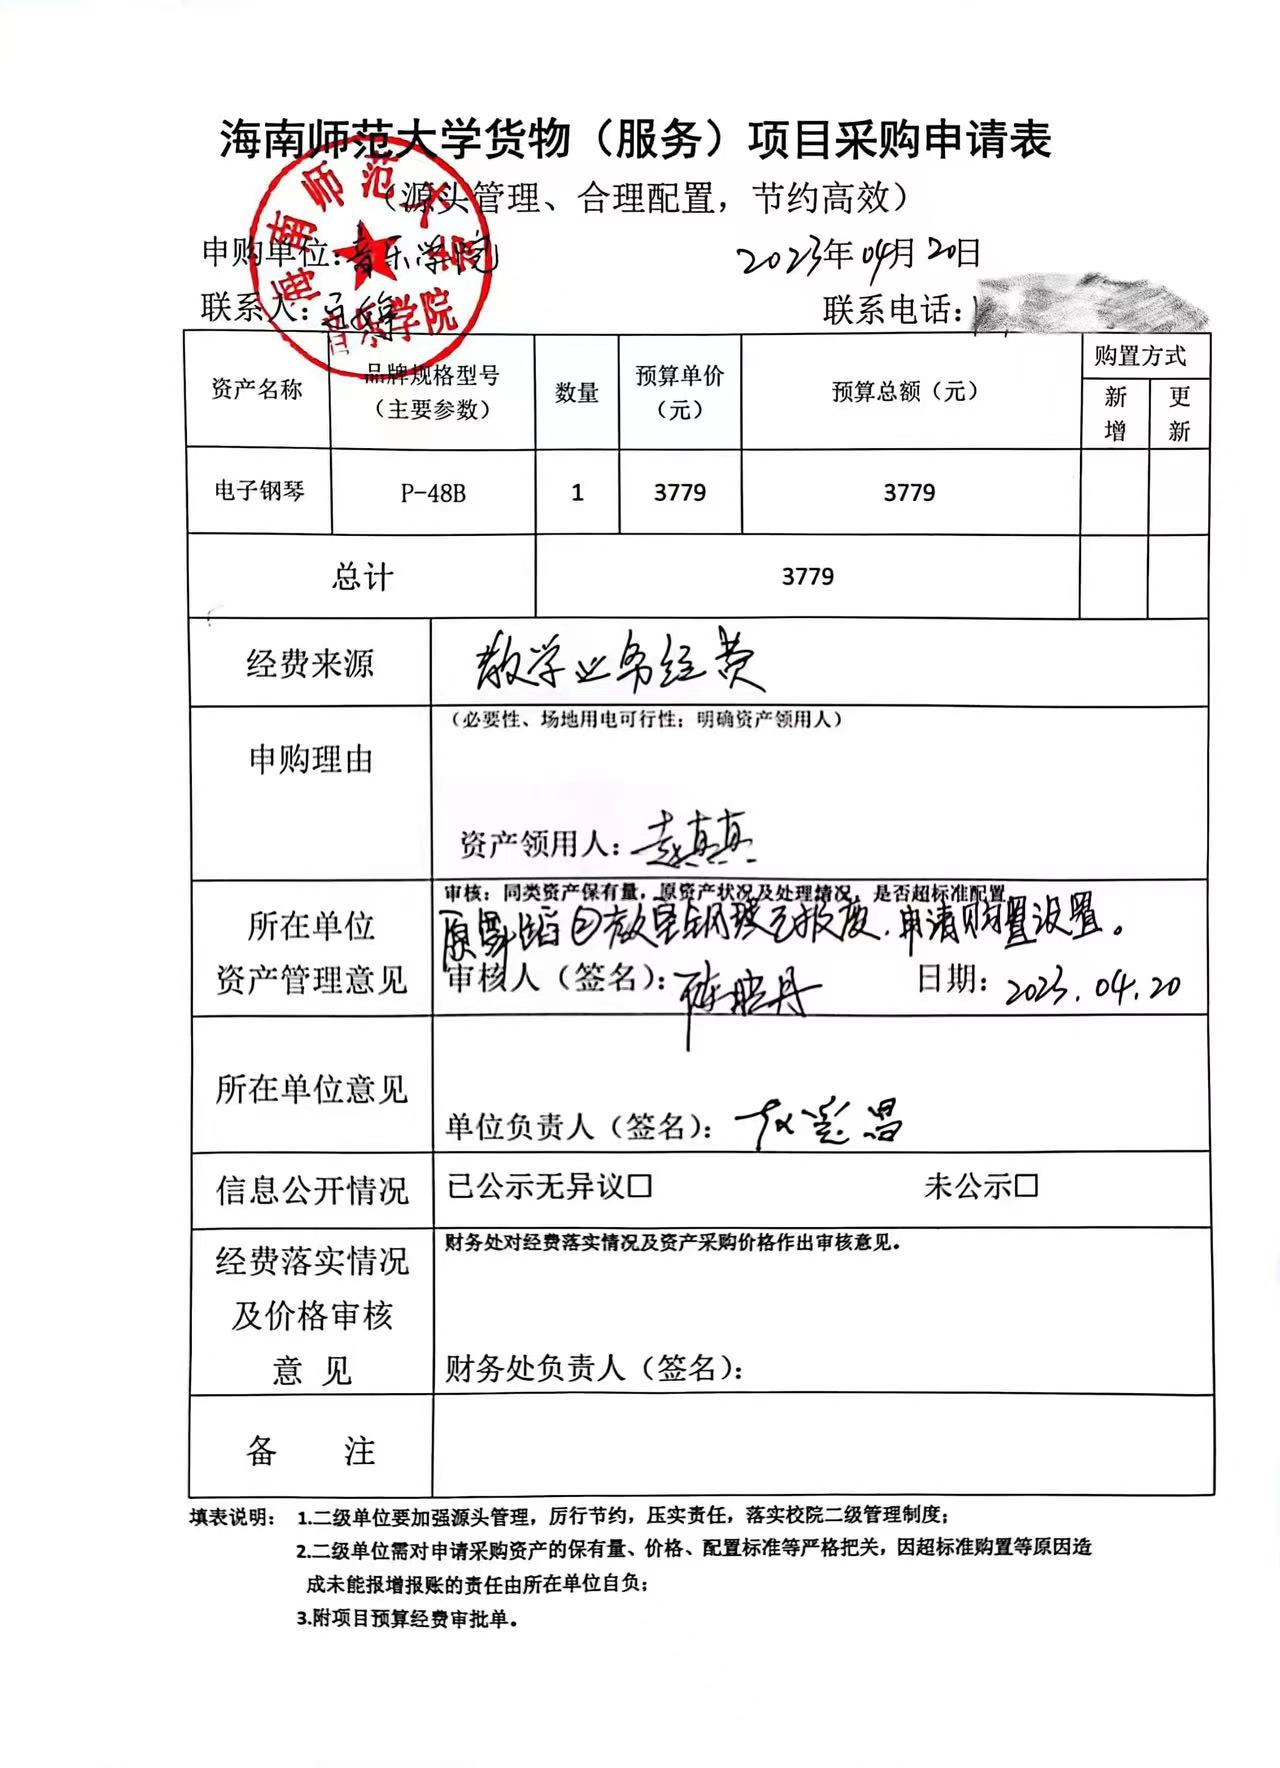 海南师范大学货物（服务）项目采购申请表
（源头管理、合理配置，节约高效）
申购单位：音乐学院 2023年04月20日
联系人： 联系电话：
海南师范大学
音乐学院
资产名称 品牌规格型号（主要参数） 数量 预算单价（元） 预算总额（元） 购置方式 新增 更新
电子钢琴 P-48B 1 3779 3779
总计 3779
经费来源 教学业务经费
申购理由 （必要性、场地用电可行性；明确资产领用人）
资产领用人：赵真真
所在单位资产管理意见 审核：同类资产保有量，原资产状况及处理情况，是否超标准配置
原舞蹈 教室钢琴已报废，申请购置设置。
审核人（签名）： 日期：2023.04.20
所在单位意见 单位负责人（签名）：
信息公开情况 已公示无异议□ 未公示□
经费落实情况及价格审核意见 财务处对经费落实情况及资产采购价格作出审核意见。
财务处负责人（签名）：
备 注
填表说明： 1.二级单位要加强源头管理，厉行节约，压实责任，落实校院二级管理制度；
2.二级单位需对申请采购资产的保有量、价格、配置标准等严格把关，因超标准购置等原因造
成未能报增报账的责任由所在单位自负；
3.附项目预算经费审批单。